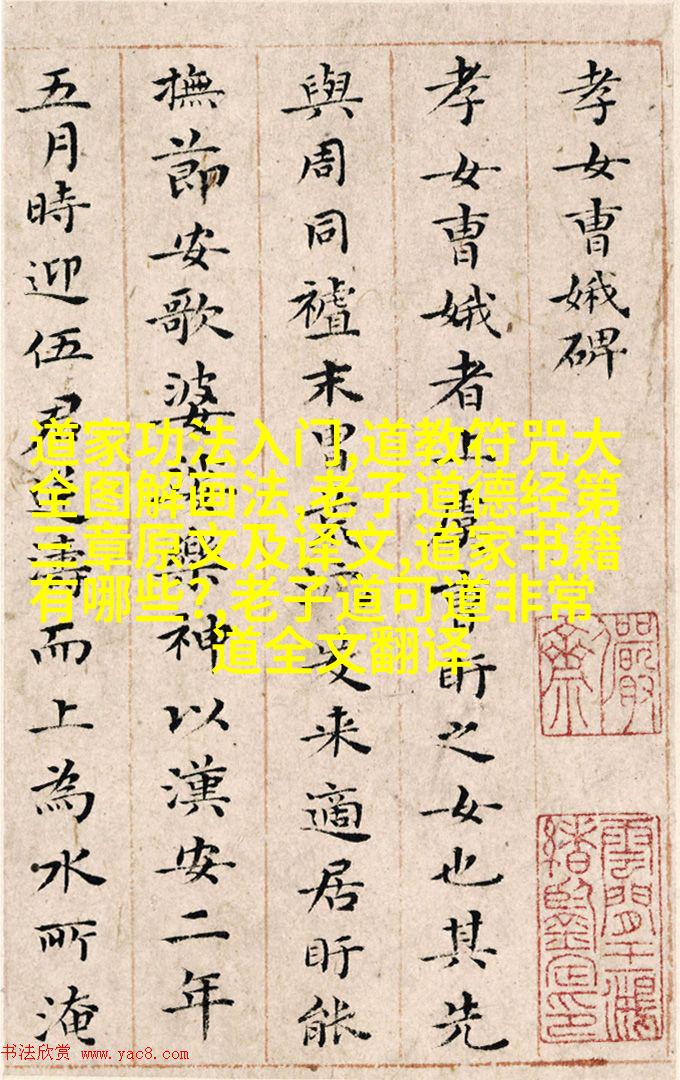 孝女曹娥碑
孝女曹娥者上虞曹盱之女也其先
與周同末胄來適居盱能
撫節安歌婆娑樂神以漢安二年
五月時迎伍君逆濤而上為水所淹
道家功法入门,道教符咒大
全图解画法,老子道德经第
三章原文及译文,道家书籍
有哪些?,老子道可道非常
道全文翻译
儼齋
雲間王鴻
緒鑒定印
书法欣赏 www.yac8.com